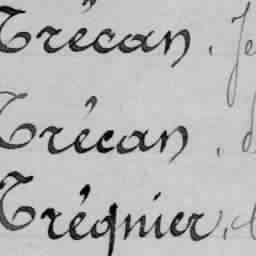 Trécan. Je
Trécan.
Trégnier.